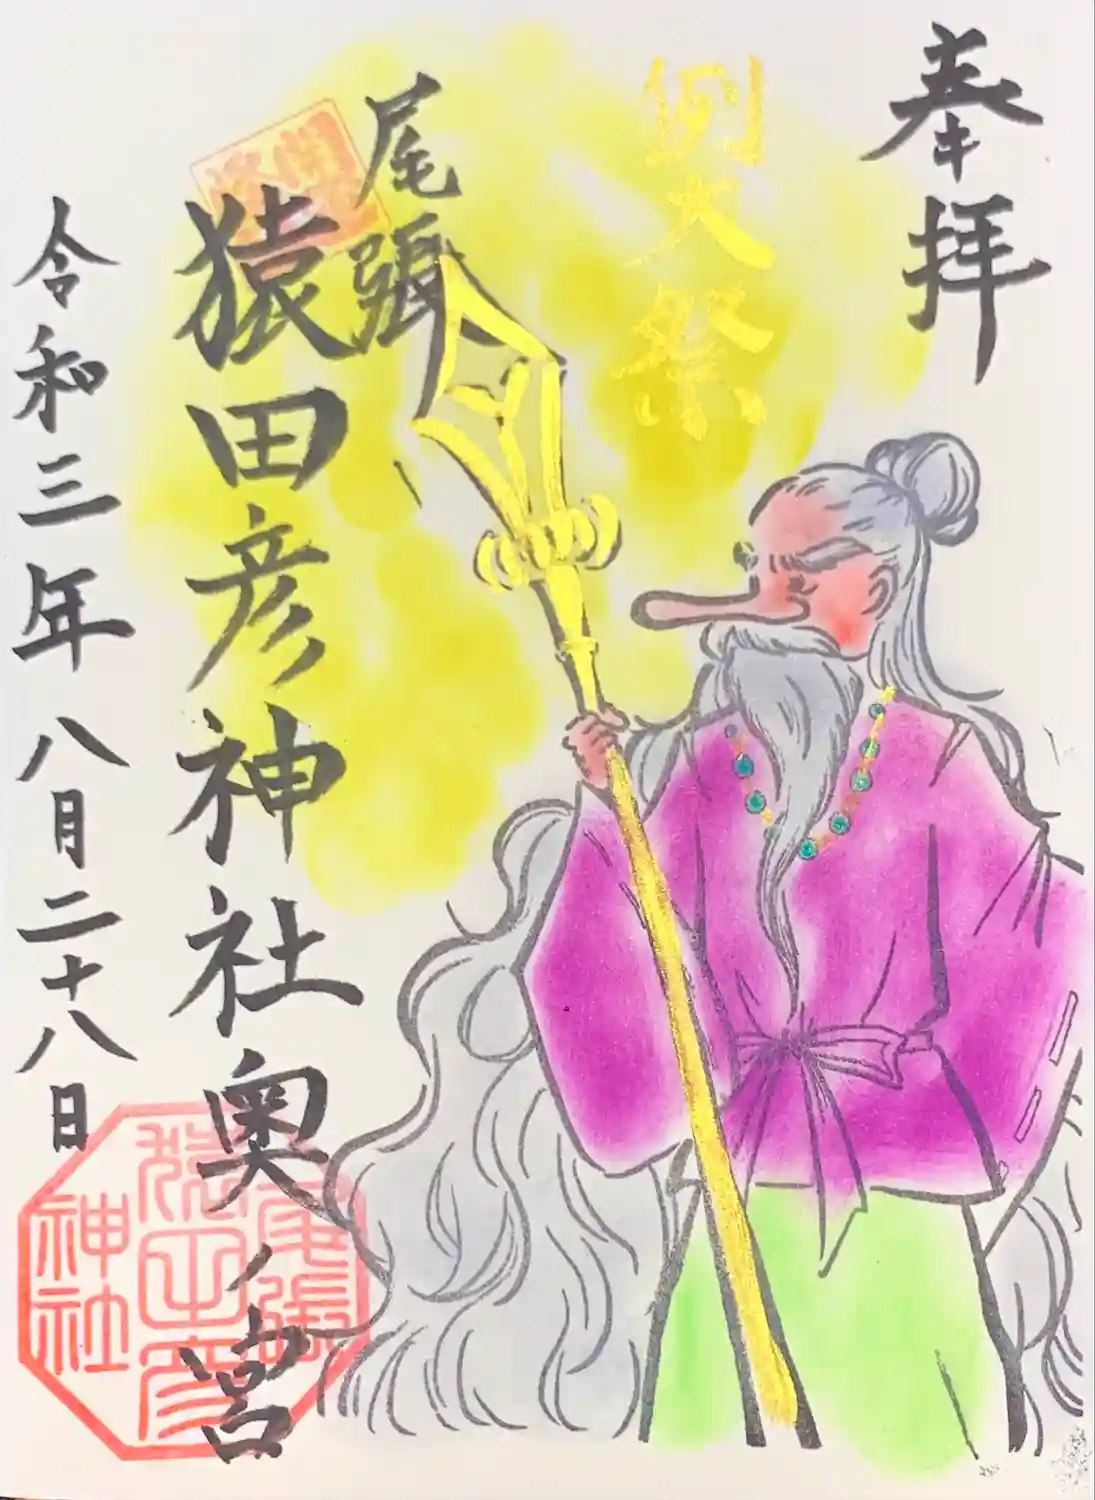 奉拝
例大祭
尾張
猿田彦神社奥ノ宮
令和三年八月二十八日
尾張
猿田彦
神社